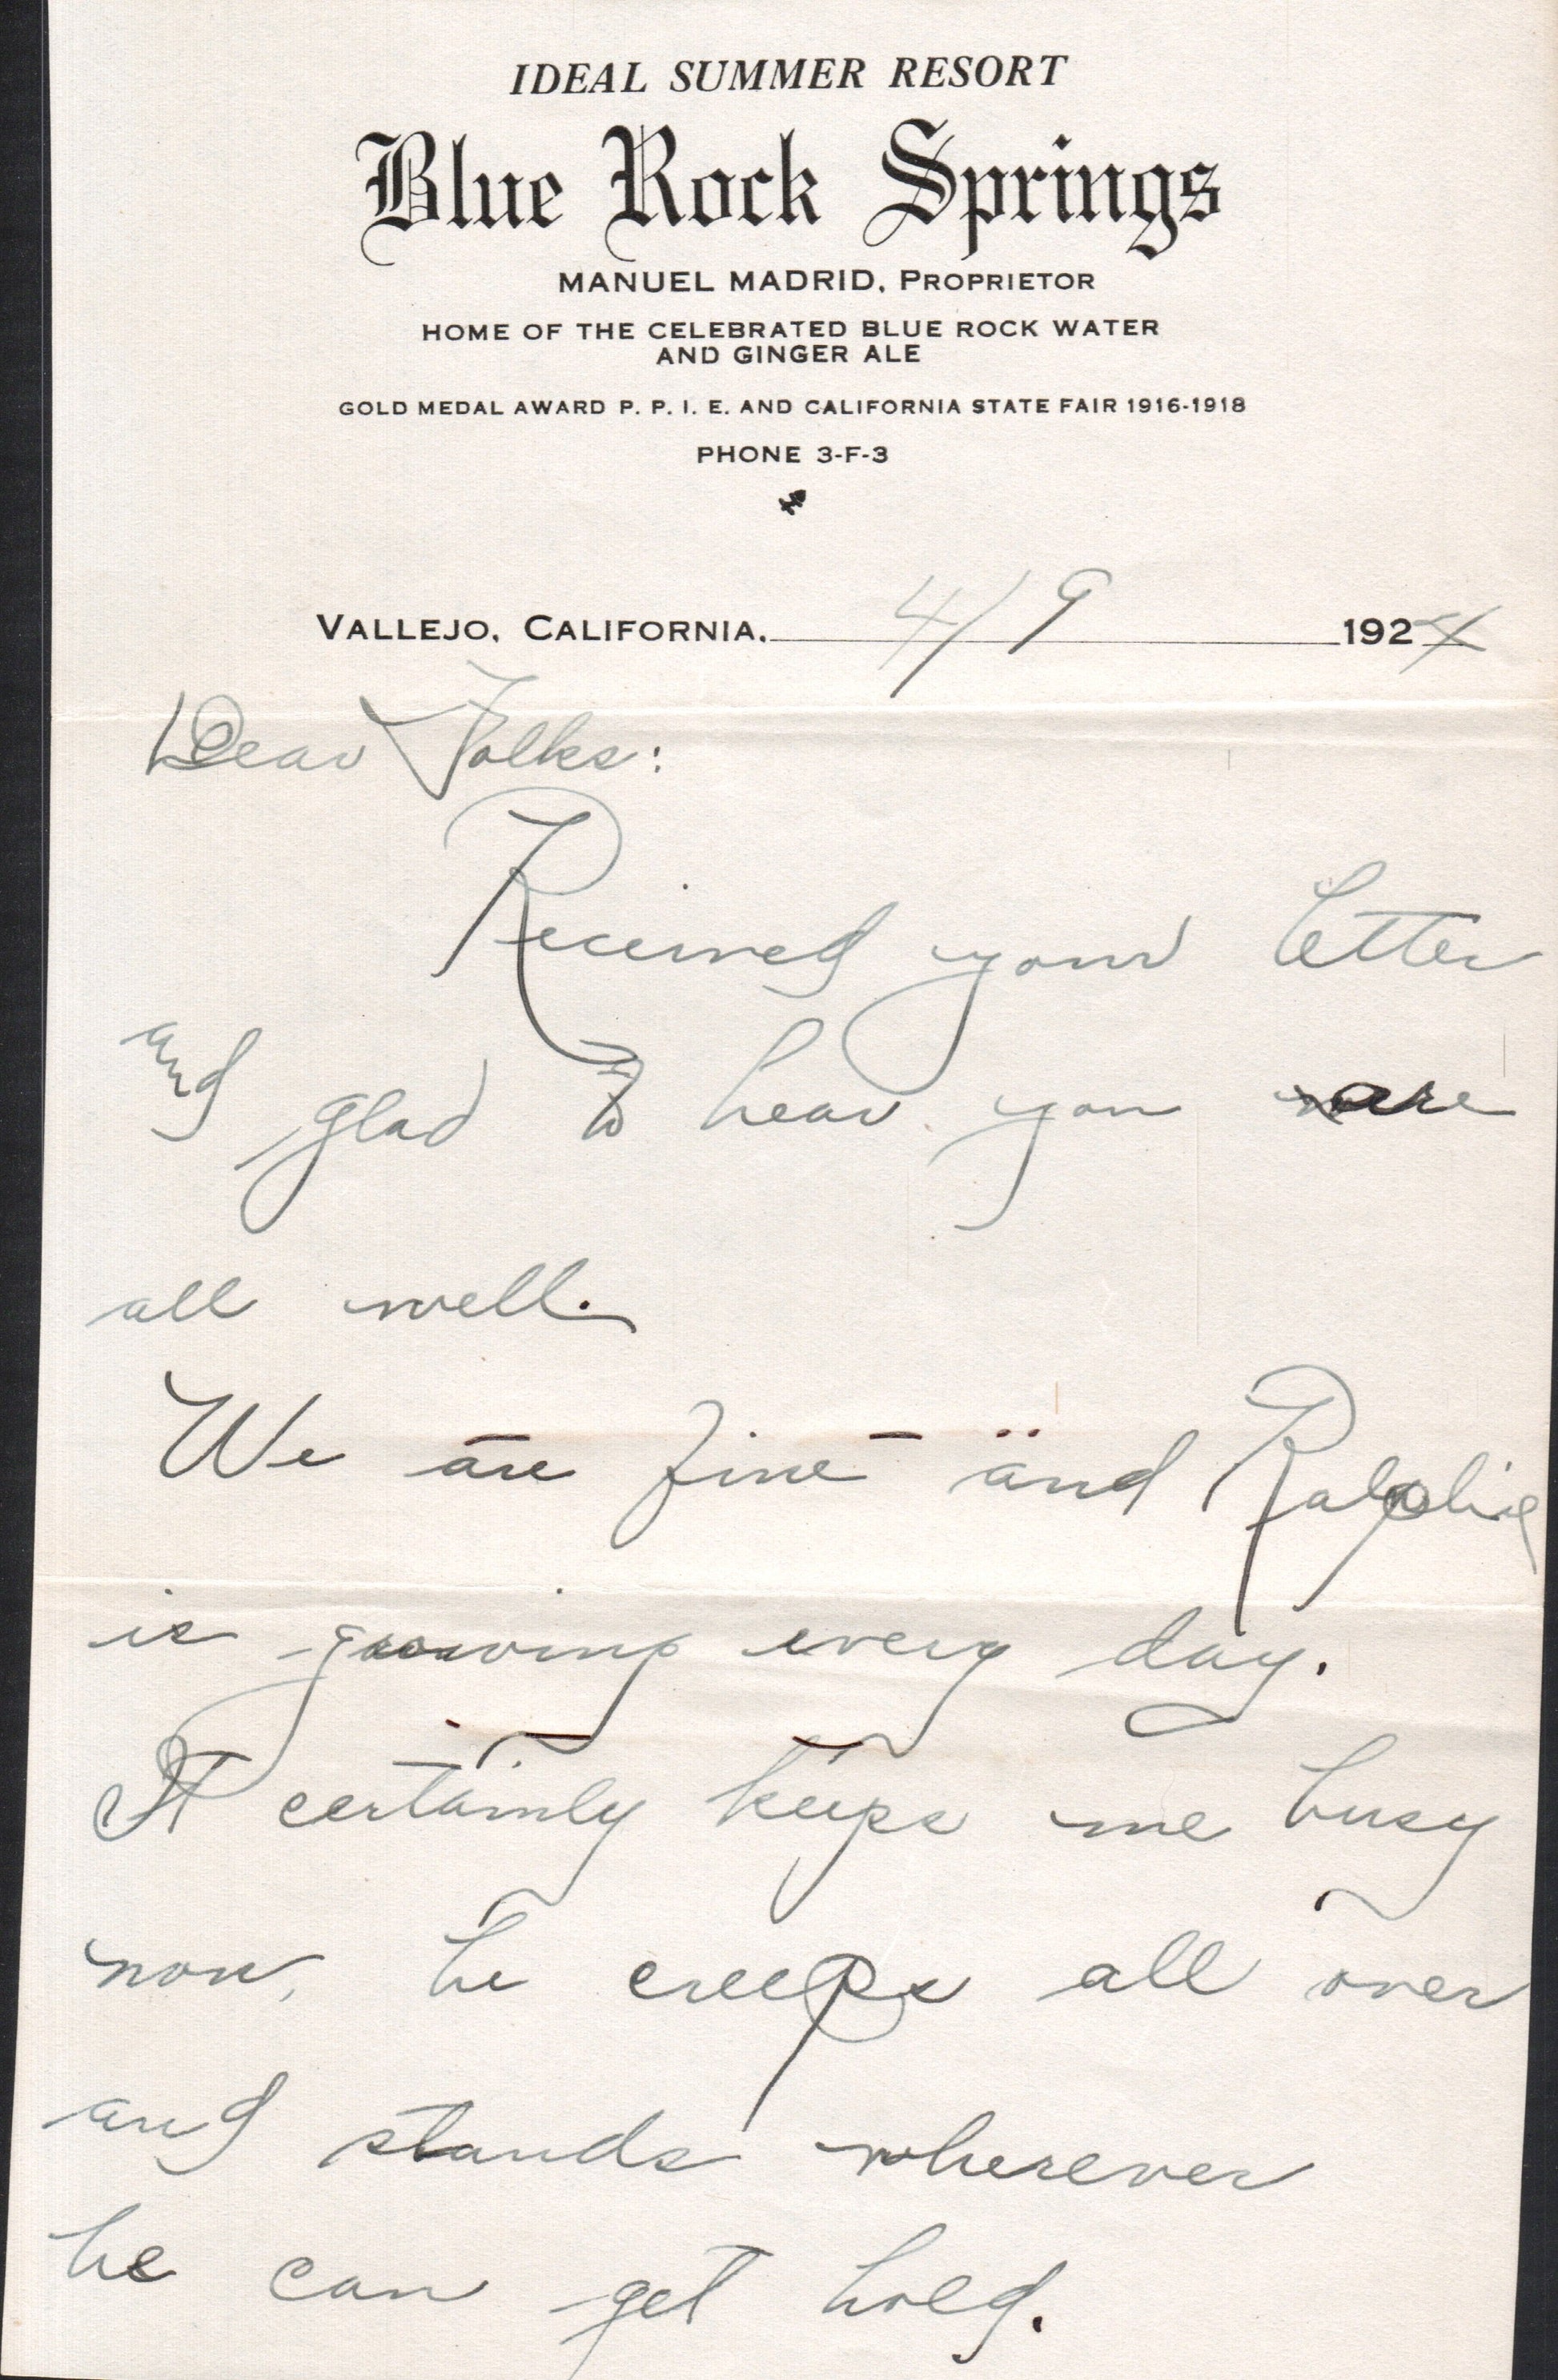 IDEAL SUMMER RESORT
Blue Rock Springs
MANUEL MADRID, PROPRIETOR
HOME OF THE CELEBRATED BLUE ROCK WATER
AND GINGER ALE
GOLD MEDAL AWARD P. P. I. E. AND CALIFORNIA STATE FAIR 1916-1918
PHONE 3-F-3
VALLEJO, CALIFORNIA, 4/9 1924
Dear Folks:
Received your letter
and glad to hear you are
all well.
We are fine and Ralphie
is growing every day.
It certainly keeps me busy
now, he creeps all over
and stands wherever
he can get hold.